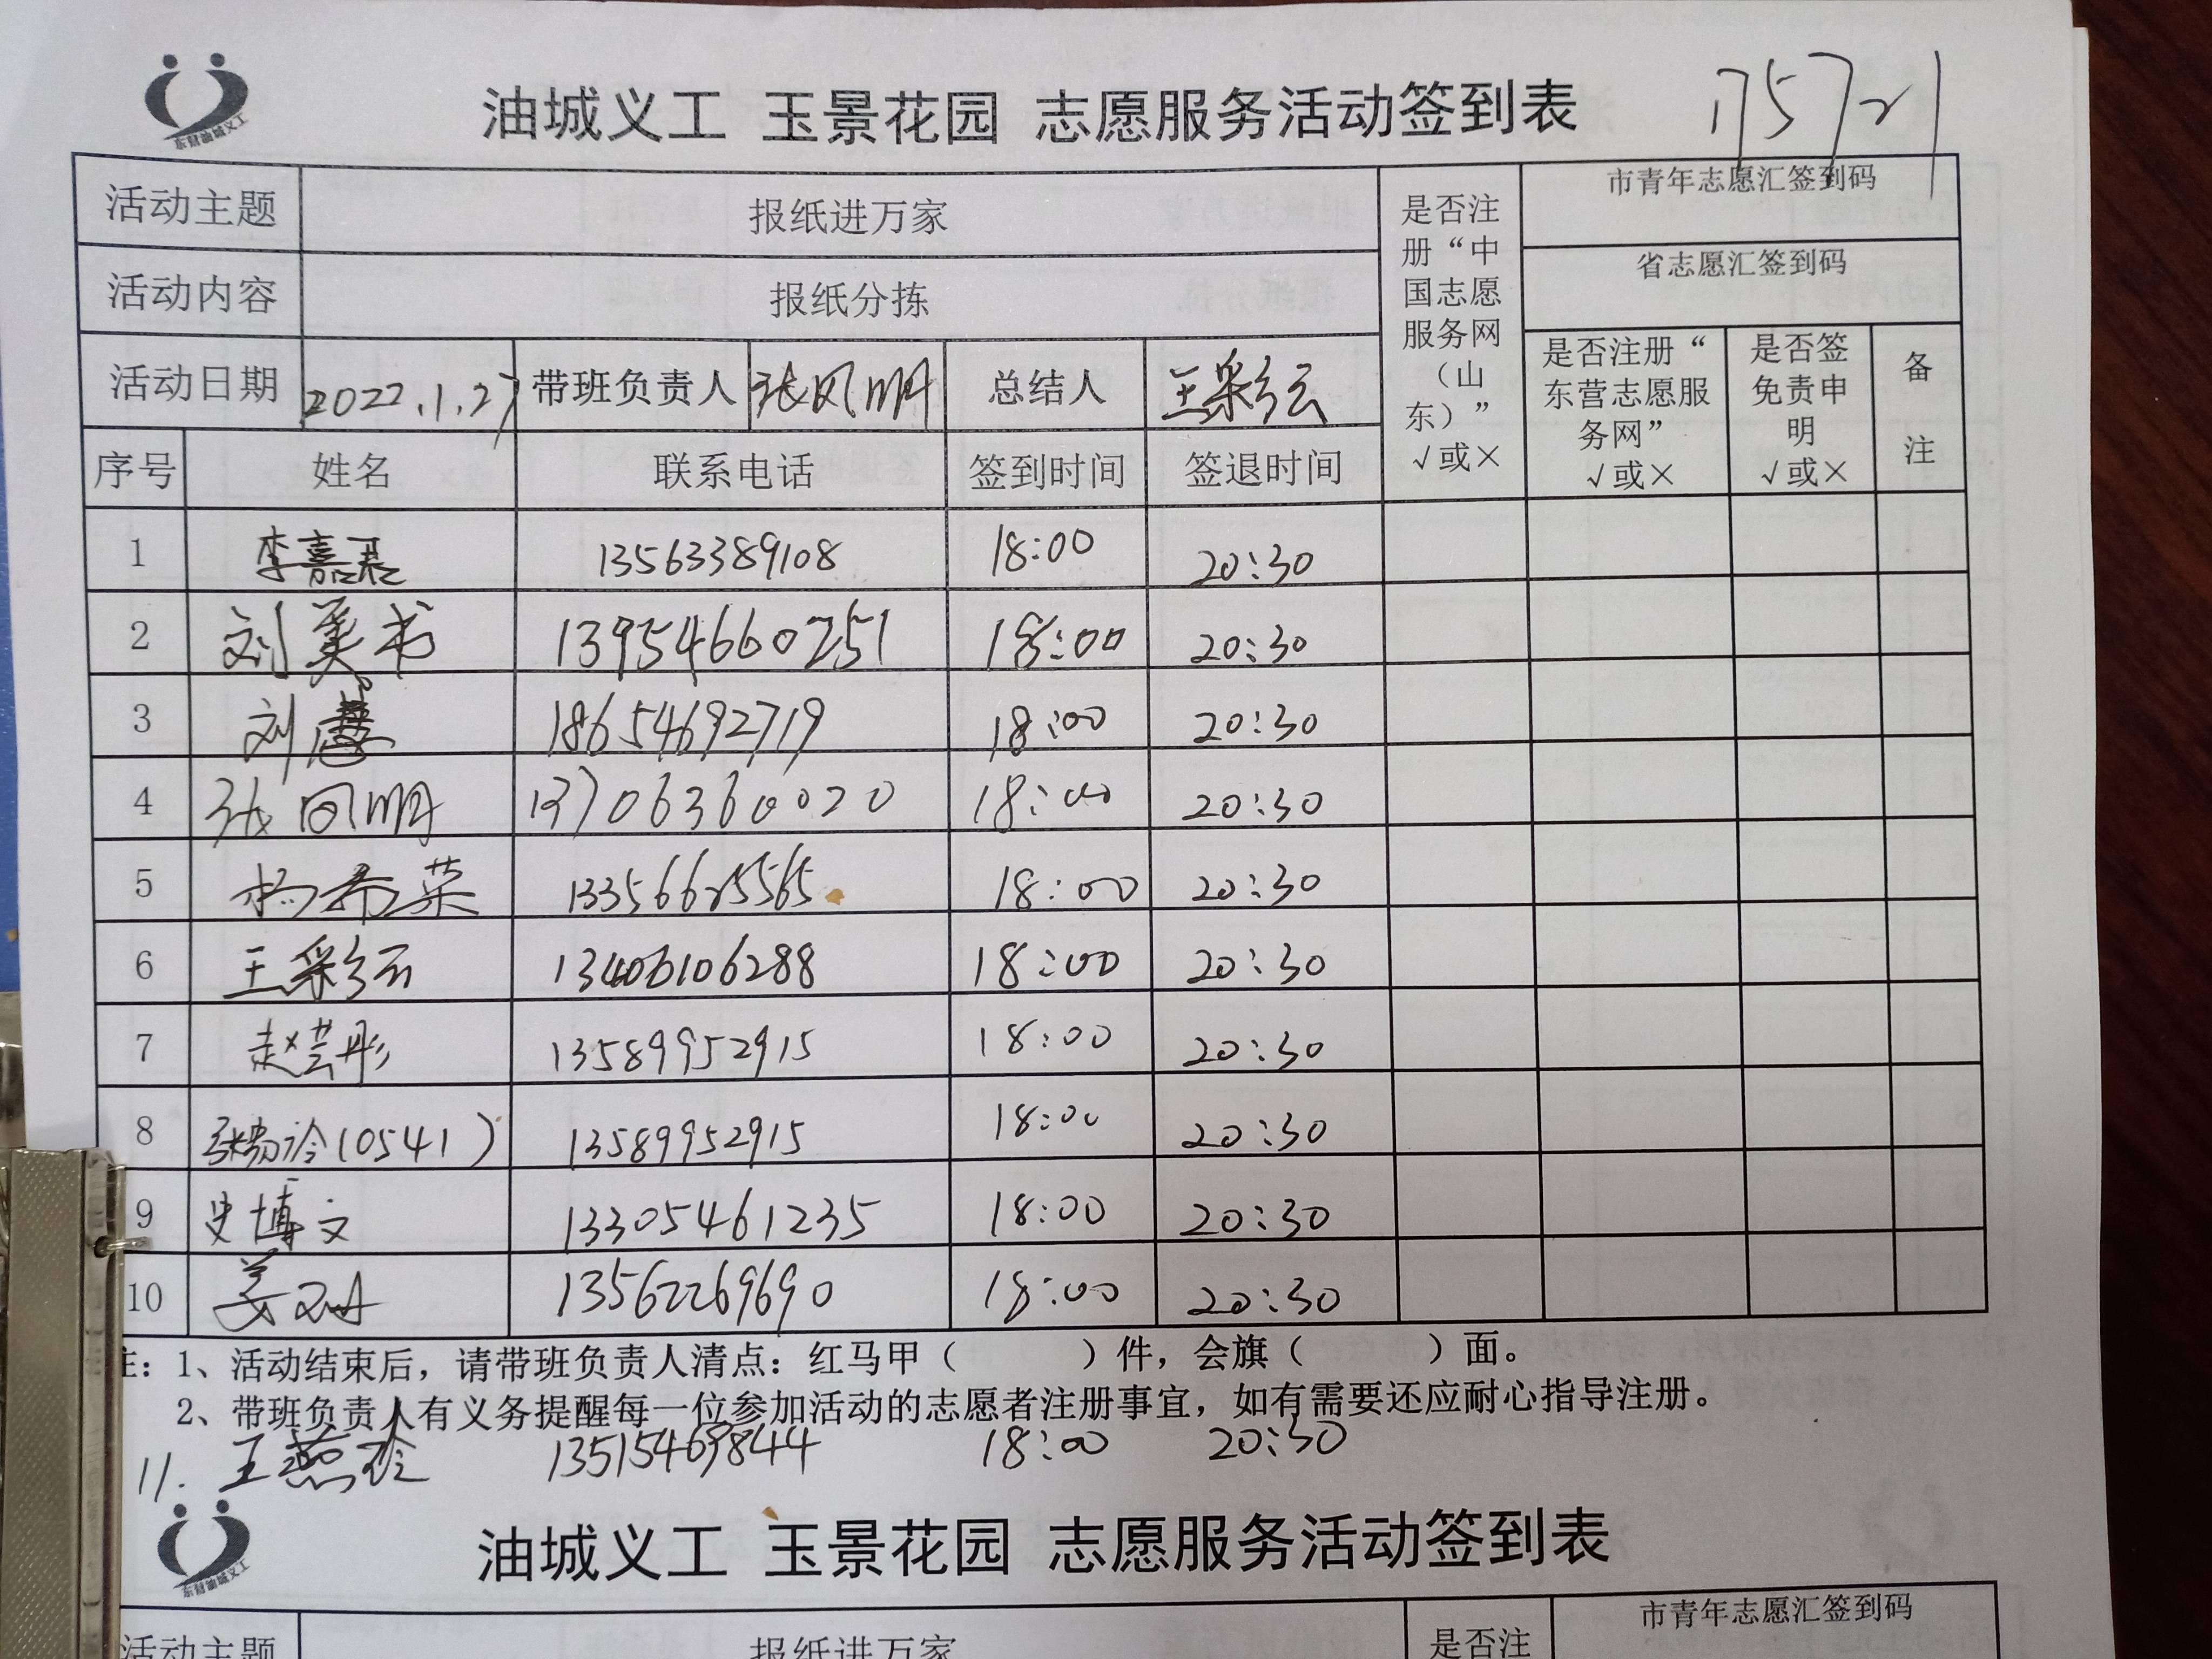 油城义工 玉景花园 志愿服务活动签到表 175721
东营油城义工
活动主题 报纸进万家
活动内容 报纸分拣
是否注册“中国志愿服务网（山东）” √或×
市青年志愿汇签到码
省志愿汇签到码
活动日期 2022.1.27 带班负责人 张凤明 总结人 王彩云
是否注册“东营志愿服务网” √或×
是否签免责申明 √或×
备注
序号 姓名 联系电话 签到时间 签退时间
1 李嘉晨 13563389108 18:00 20:30
2 刘美书 13954660251 18:00 20:30
3 刘 18654692719 18:00 20:30
4 张凤明 13706360020 18:00 20:30
5 杨希英 13356625565 18:00 20:30
6 王彩云 13406106288 18:00 20:30
7 赵芸彤 13589952915 18:00 20:30
8 (0541) 13589952915 18:00 20:30
9 史博文 13305461235 18:00 20:30
10 姜 13562269690 18:00 20:30
注：1、活动结束后，请带班负责人清点：红马甲（ ）件，会旗（ ）面。
2、带班负责人有义务提醒每一位参加活动的志愿者注册事宜，如有需要还应耐心指导注册。
11. 王燕玲 13515469844 18:00 20:30
油城义工 玉景花园 志愿服务活动签到表
东营油城义工
活动主题 报纸进万家 是否注
市青年志愿汇签到码